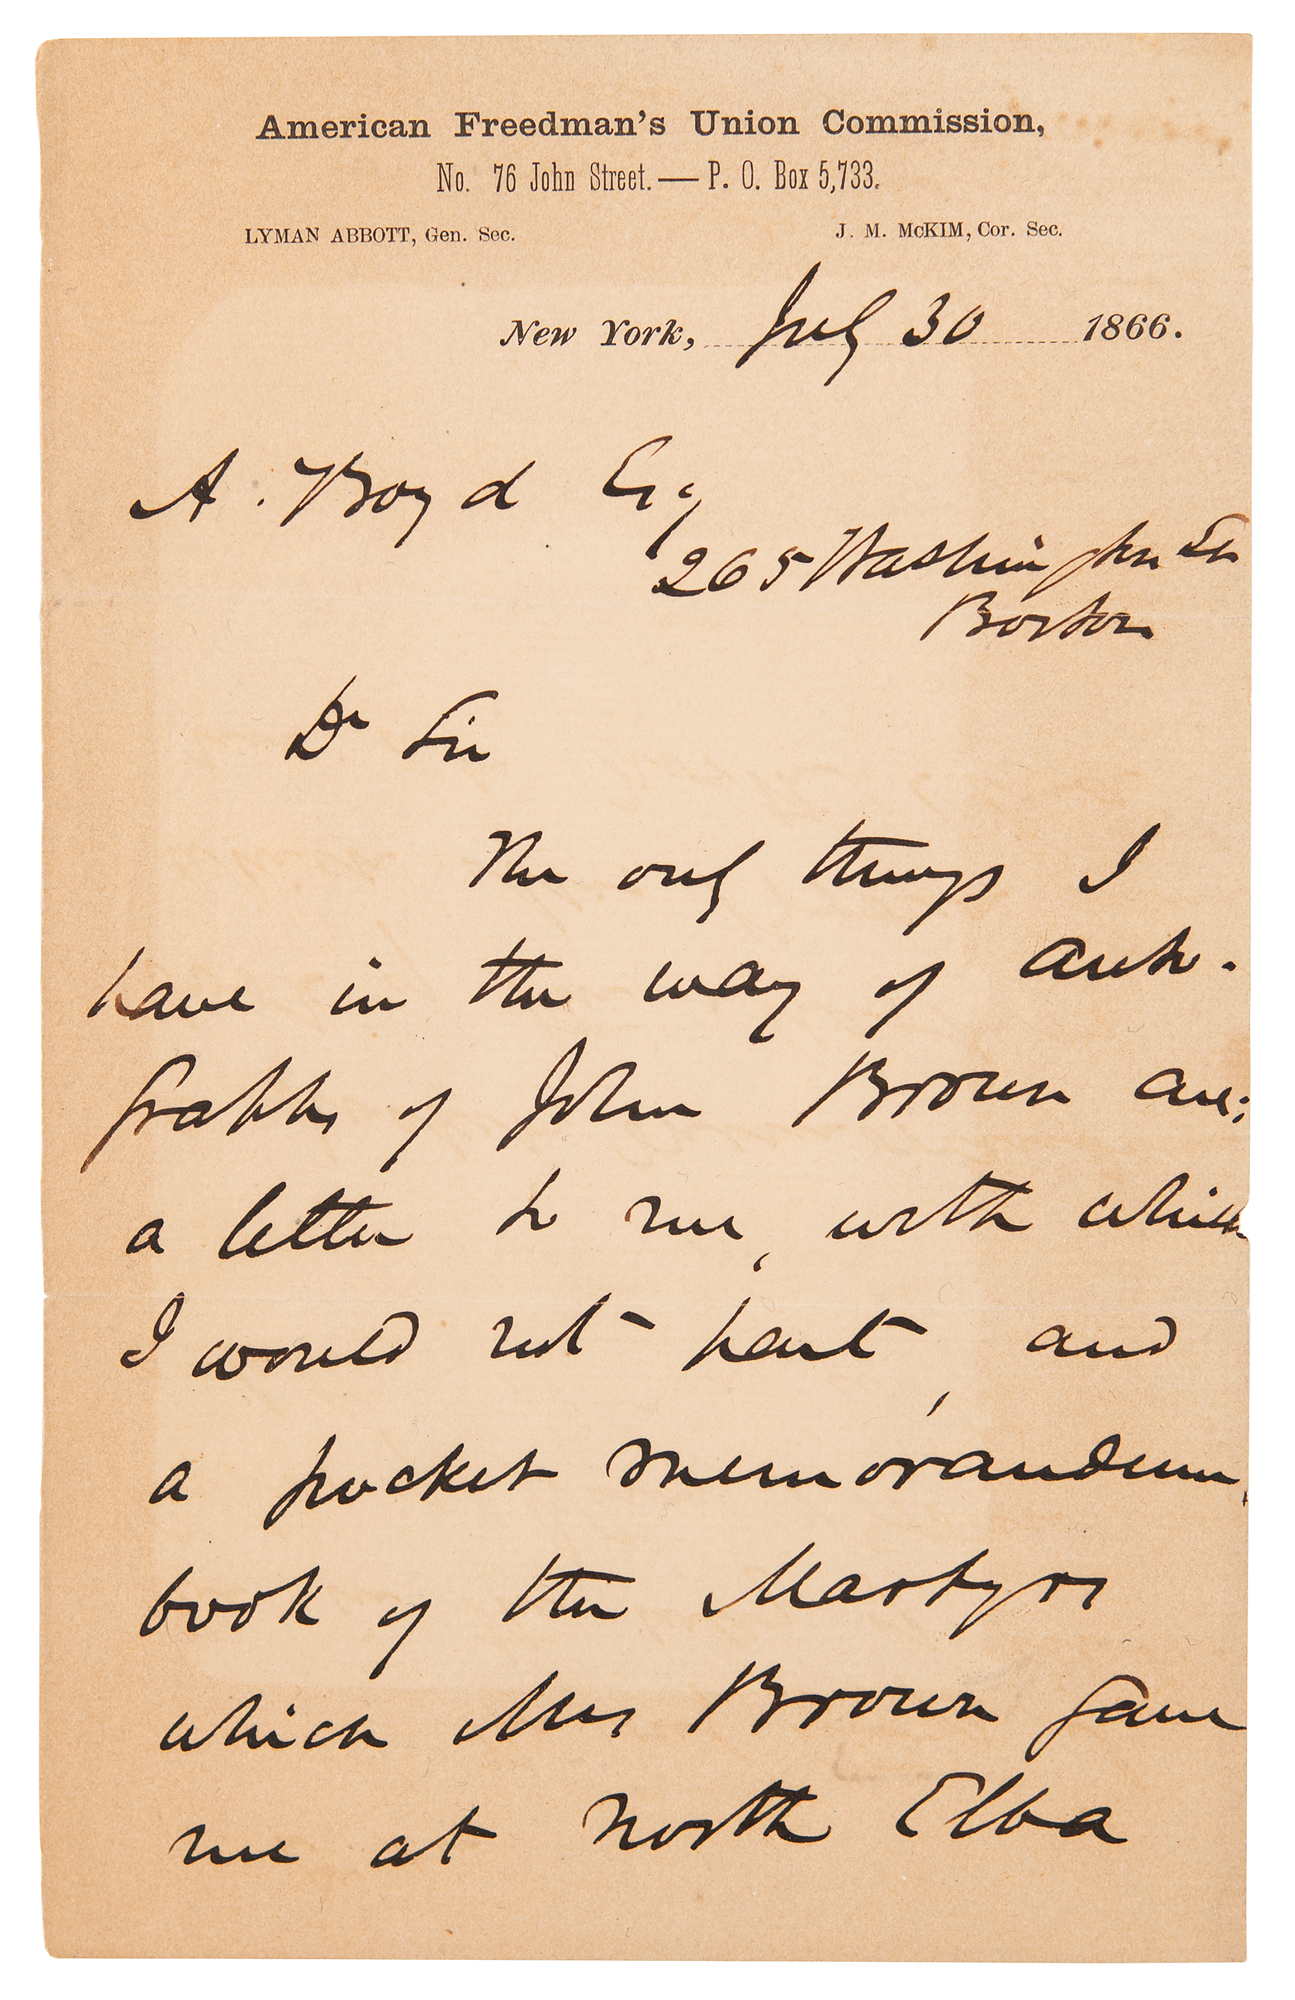 American Freedman's Union Commission,
No. 76 John Street.—P. O. Box 5,733.
LYMAN ABBOTT, Gen. Sec. J. M. McKIM, Cor. Sec.
New York, July 30 1866.
A. Boyd Esq
265 Washington St
Boston
Dr Sir
The only things I
have in the way of auto-
graphs of John Brown are:
a letter to me, with which
I would not part, and
a pocket memorandum
book of the Martyrs
which Mrs Brown gave
me at North Elba